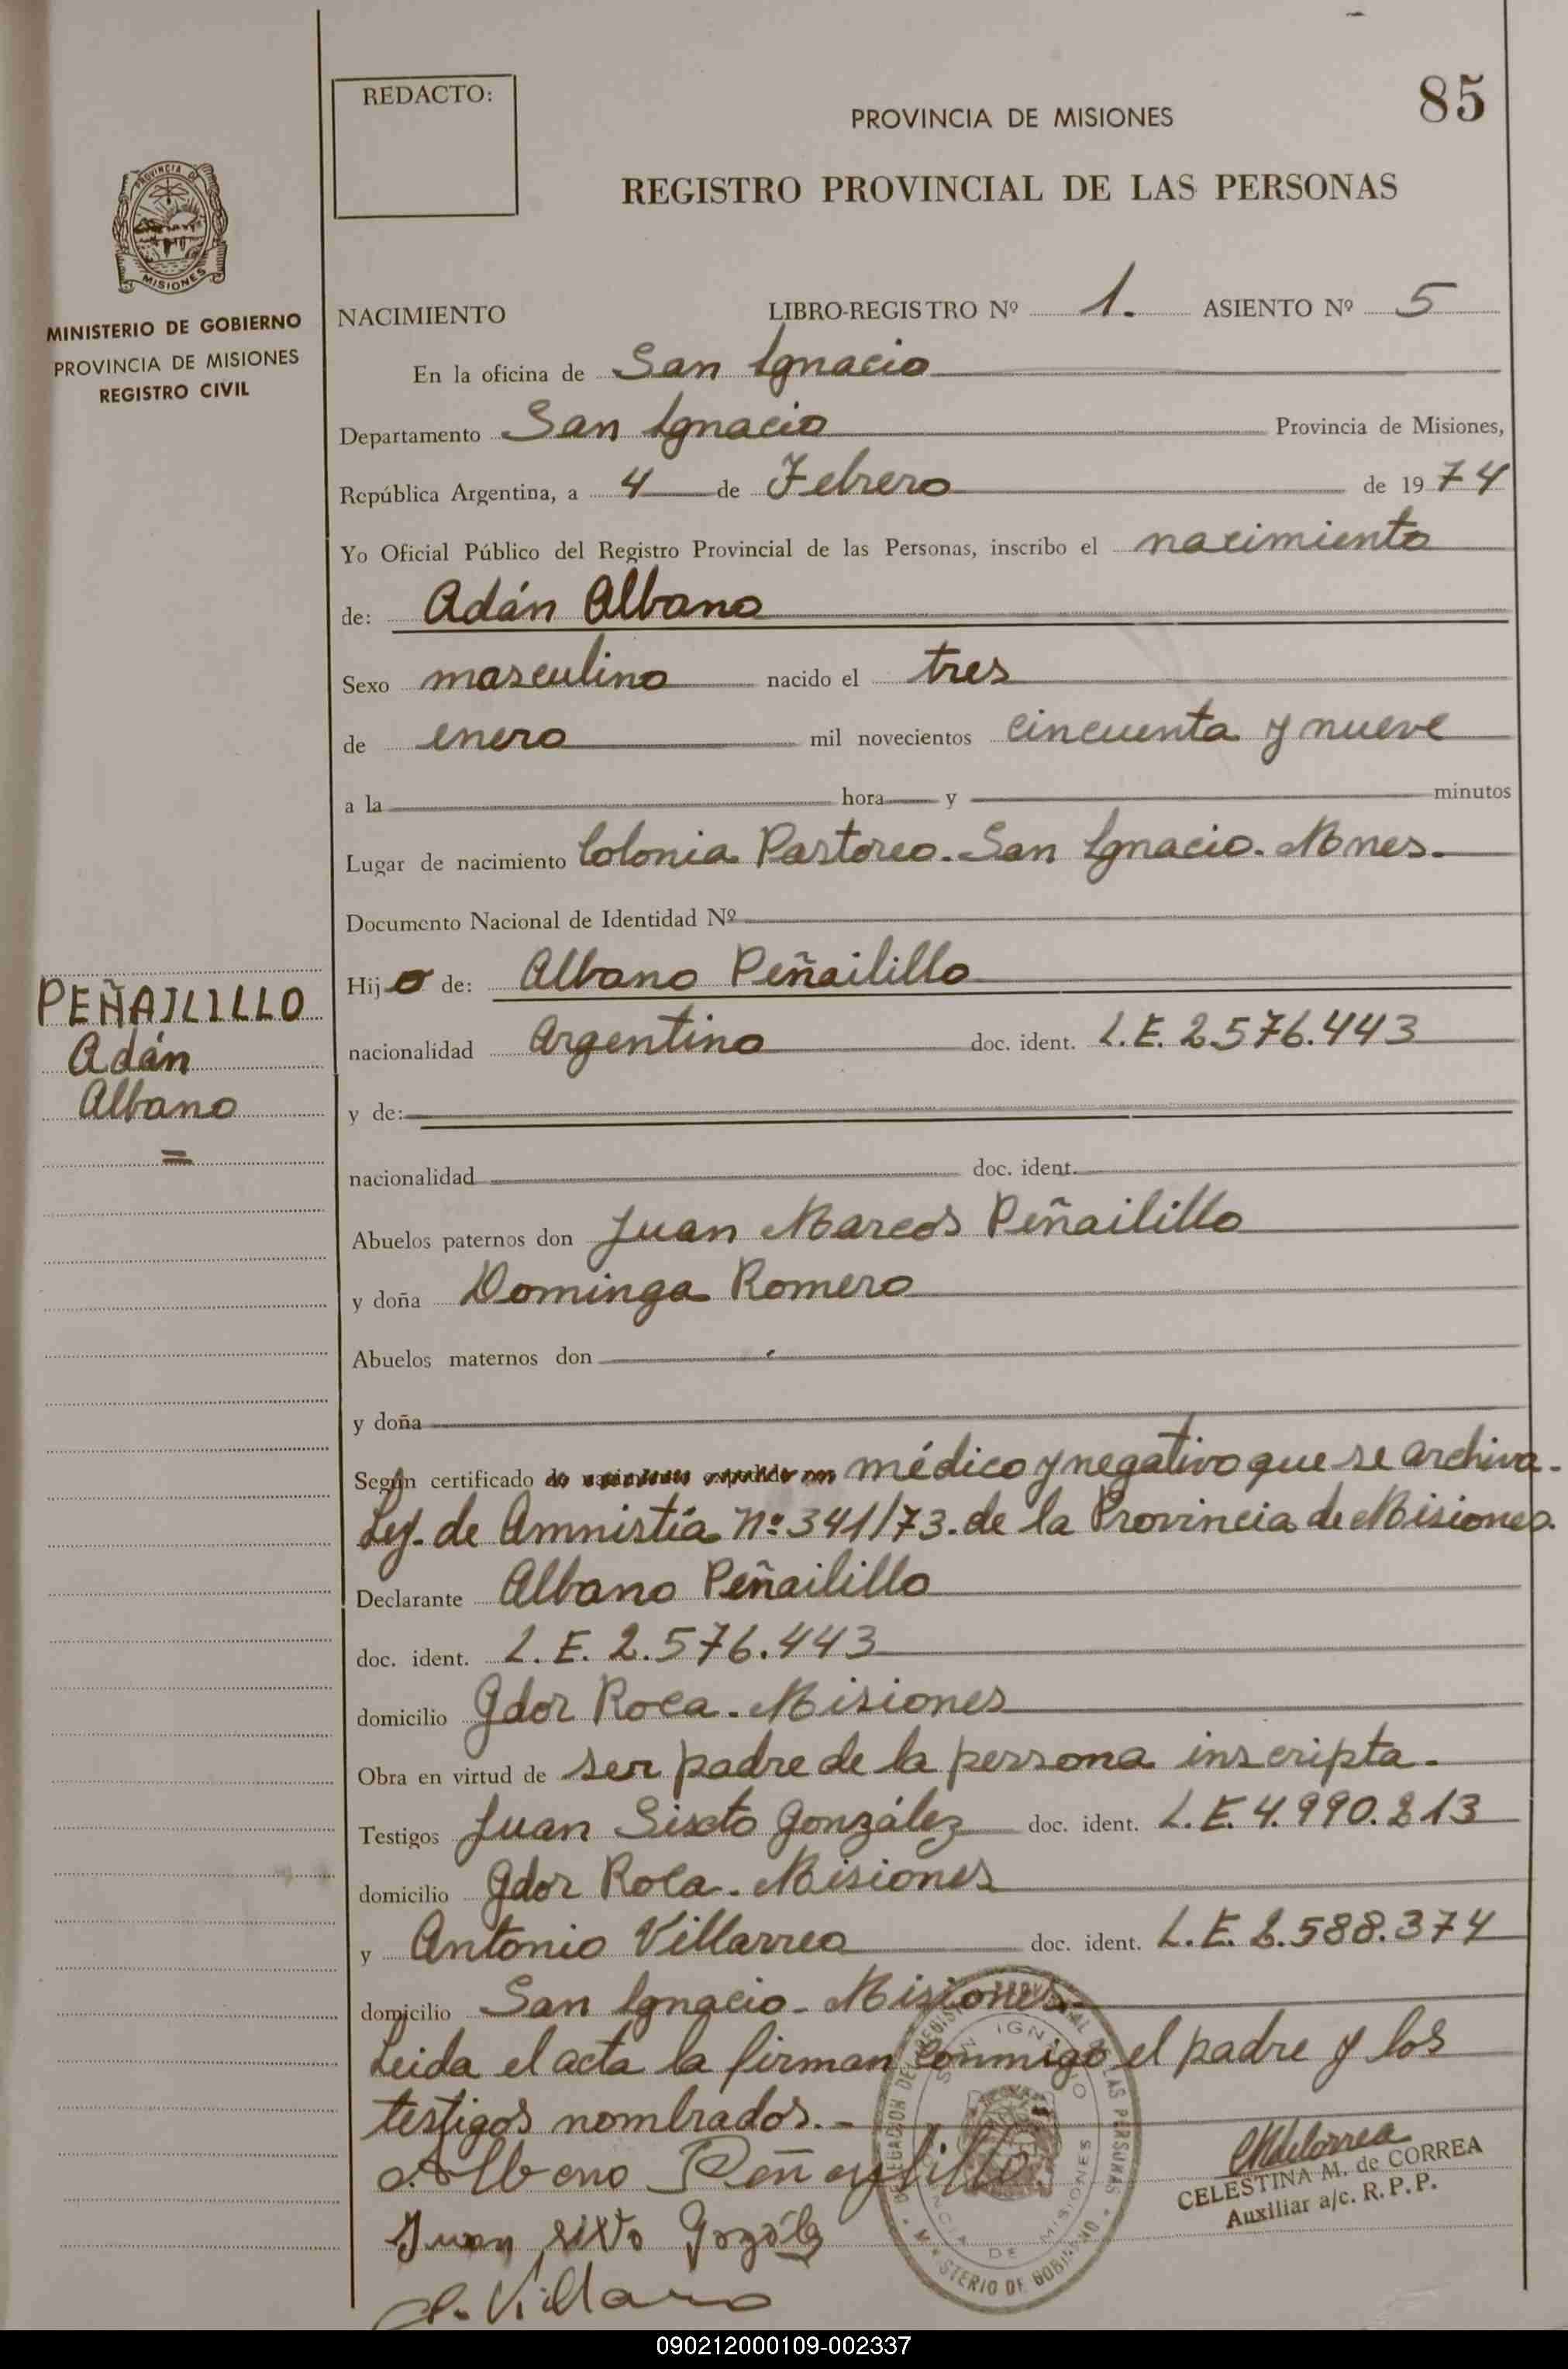 REDACTO:
PROVINCIA DE MISIONES
85
REGISTRO PROVINCIAL DE LAS PERSONAS
PROVINCIA DE
MISIONES
MINISTERIO DE GOBIERNO
PROVINCIA DE MISIONES
REGISTRO CIVIL
NACIMIENTO LIBRO-REGISTRO Nº 1. ASIENTO Nº 5
En la oficina de San Ignacio
Departamento San Ignacio Provincia de Misiones,
República Argentina, a 4 de Febrero de 1974
Yo Oficial Público del Registro Provincial de las Personas, inscribo el nacimiento
de: Adán Albano
Sexo masculino nacido el tres
de enero mil novecientos cincuenta y nueve
a la hora y minutos
Lugar de nacimiento Colonia Pastoreo. San Ignacio. Mnes.
Documento Nacional de Identidad Nº
Hijo de: Albano Peñailillo
PEÑAILILLO
Adán
Albano
=
nacionalidad Argentino doc. ident. L.E. 2.576.443
y de:
nacionalidad doc. ident.
Abuelos paternos don Juan Marcos Peñailillo
y doña Dominga Romero
Abuelos maternos don
y doña
Según certificado de nacimiento expedido por médico y negativo que se archiva.
Ley. de Amnistía Nº 341/73. de la Provincia de Misiones.
Declarante Albano Peñailillo
doc. ident. L.E. 2.576.443
domicilio Gdor Roca. Misiones
Obra en virtud de ser padre de la persona inscripta.
Testigos Juan Sixto González doc. ident. L.E. 4.990.213
domicilio Gdor Roca. Misiones
y Antonio Villarreo doc. ident. L.E. 2.588.374
domicilio San Ignacio - Misiones.
Leida el acta la firman conmigo el padre y los
testigos nombrados. -
Albano Peñaylillo
Juan Sixto
A. Villaro
DELEGACION DEL REGISTRO PROVINCIAL DE LAS PERSONAS
SAN IGNACIO
PROVINCIA DE MISIONES
MINISTERIO DE GOBIERNO
CELESTINA M. de CORREA
Auxiliar a/c. R. P. P.
090212000109-002337